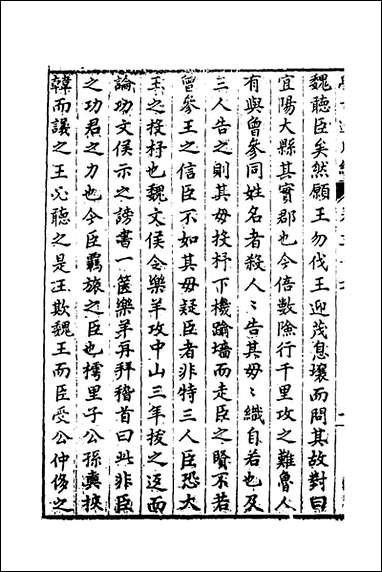 魏聽臣矣然願王勿伐王迎茂息壤而問其故對曰
宜陽大縣其實郡也今倍數險行千里攻之難魯人
有與曾參同姓名者殺人〻告其母〻織自若也及
三人告之則其母投杼下機踰墻而走臣之賢不若
曾參王之信臣不如其母疑臣者非特三人臣恐大
王之投杼也魏文侯令樂羊攻中山三年拔之返而
論功文侯示之謗書一篋樂羊再拜稽首曰此非臣
之功君之力也今臣羇旅之臣也樗里子公孫奭挾
韓而議之王必聽之是王欺魏王而臣受公仲侈之